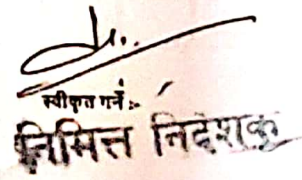 स्वीकृत गर्ने :-
निमित्त निर्देशक